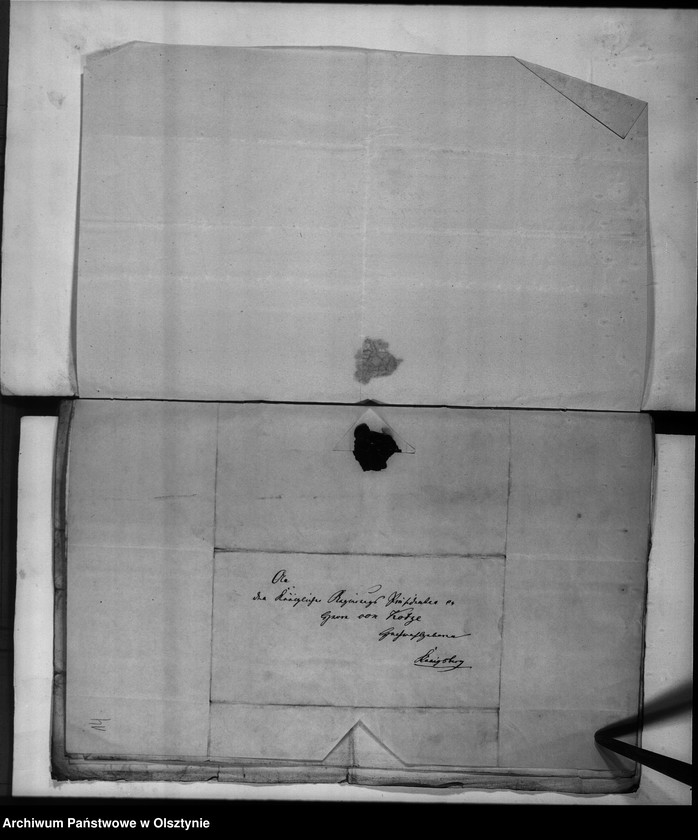 An
den Königlichen Regierungs Präsidenten pp
Herrn von Kotze
Hochwohlgeboren
Königsberg
14
Archiwum Państwowe w Olsztynie